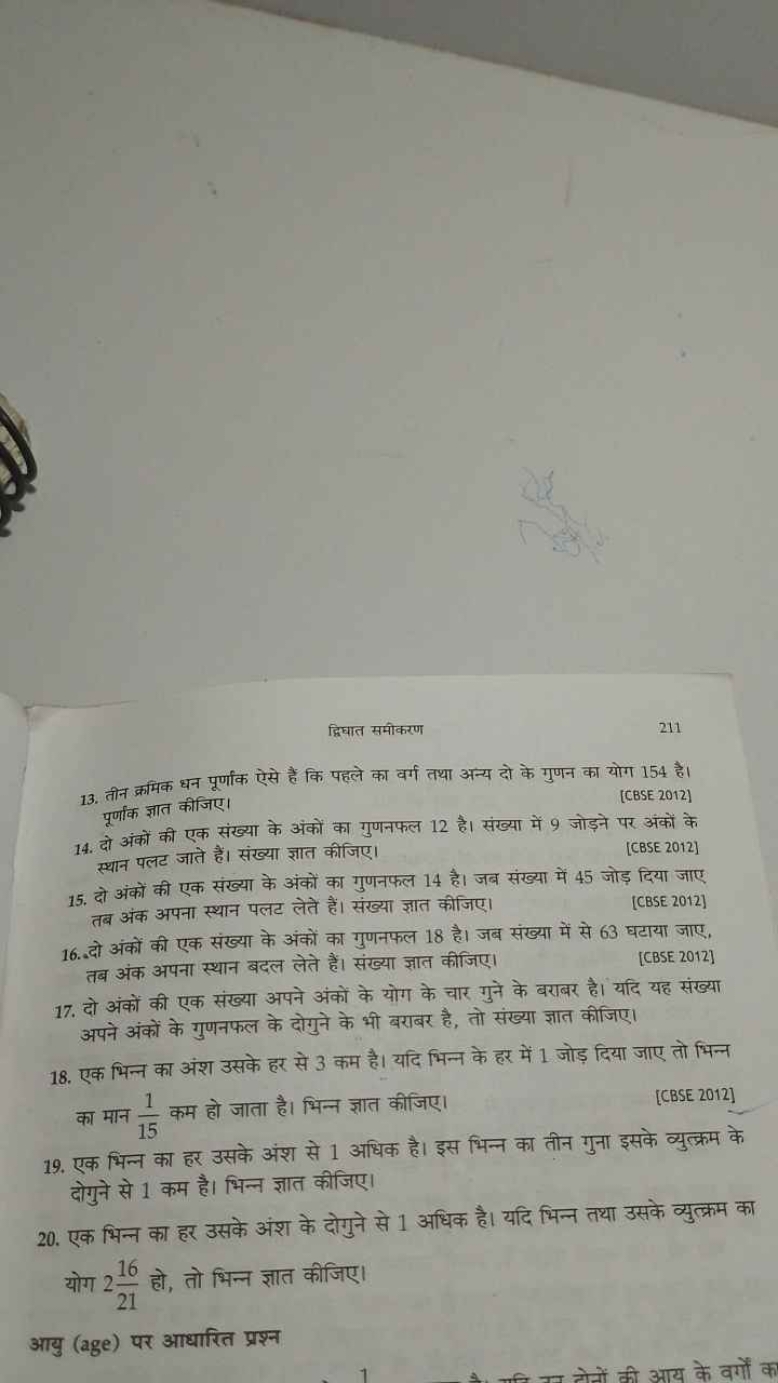 द्विघात समीकरण 211
13. तीन क्रमिक धन पूर्णांक ऐसे हैं कि पहले का वर्ग तथा अन्य दो के गुणन का योग 154 है।
पूर्णांक ज्ञात कीजिए। [CBSE 2012]
14. दो अंकों की एक संख्या के अंकों का गुणनफल 12 है। संख्या में 9 जोड़ने पर अंकों के
स्थान पलट जाते हैं। संख्या ज्ञात कीजिए। [CBSE 2012]
15. दो अंकों की एक संख्या के अंकों का गुणनफल 14 है। जब संख्या में 45 जोड़ दिया जाए
तब अंक अपना स्थान पलट लेते हैं। संख्या ज्ञात कीजिए। [CBSE 2012]
16. दो अंकों की एक संख्या के अंकों का गुणनफल 18 है। जब संख्या में से 63 घटाया जाए,
तब अंक अपना स्थान बदल लेते हैं। संख्या ज्ञात कीजिए। [CBSE 2012]
17. दो अंकों की एक संख्या अपने अंकों के योग के चार गुने के बराबर है। यदि यह संख्या
अपने अंकों के गुणनफल के दोगुने के भी बराबर है, तो संख्या ज्ञात कीजिए।
18. एक भिन्न का अंश उसके हर से 3 कम है। यदि भिन्न के हर में 1 जोड़ दिया जाए तो भिन्न
का मान 1/15 कम हो जाता है। भिन्न ज्ञात कीजिए। [CBSE 2012]
19. एक भिन्न का हर उसके अंश से 1 अधिक है। इस भिन्न का तीन गुना इसके व्युत्क्रम के
दोगुने से 1 कम है। भिन्न ज्ञात कीजिए।
20. एक भिन्न का हर उसके अंश के दोगुने से 1 अधिक है। यदि भिन्न तथा उसके व्युत्क्रम का
योग 2 16/21 हो, तो भिन्न ज्ञात कीजिए।
आयु (age) पर आधारित प्रश्न
1 है। यदि उन दोनों की आयु के वर्गों का